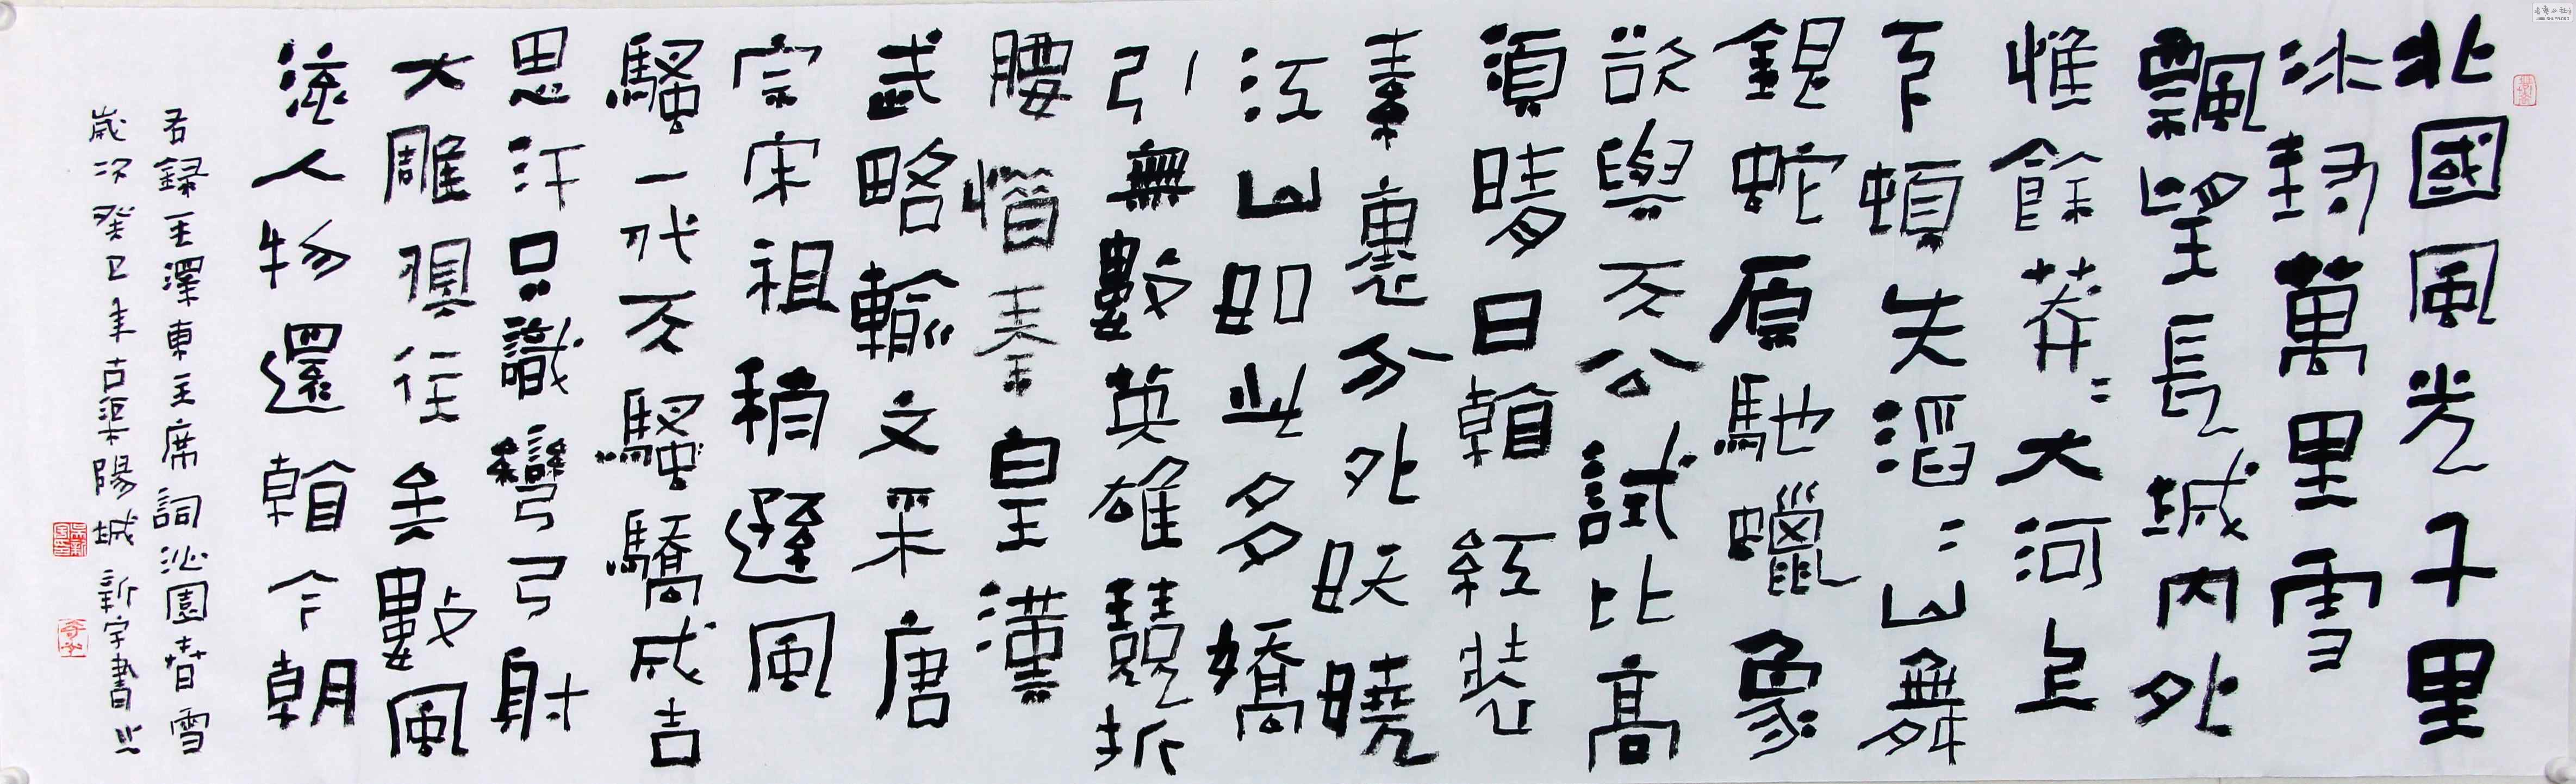 北國風光千里
冰封萬里雪
飄望長城内外
惟餘莽〻大河上
下頓失滔〻山舞
銀蛇原馳蠟象
欲與天公試比高
須晴日看紅裝
素裹分外妖嬈
江山如此多嬌
引無數英雄競折
腰惜秦皇漢
武略輸文采唐
宗宋祖稍遜風
騷一代天騷驕成吉
思汗只識彎弓射
大雕俱往矣數風
流人物還看今朝
右録毛澤東主席詞沁園春雪
歲次癸巳年古渠陽城新宇書